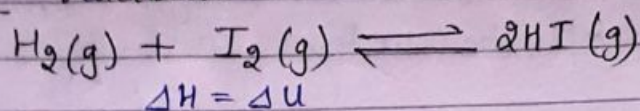 H₂(g) + I₂(g) ⇌ 2HI(g)
ΔH = ΔU